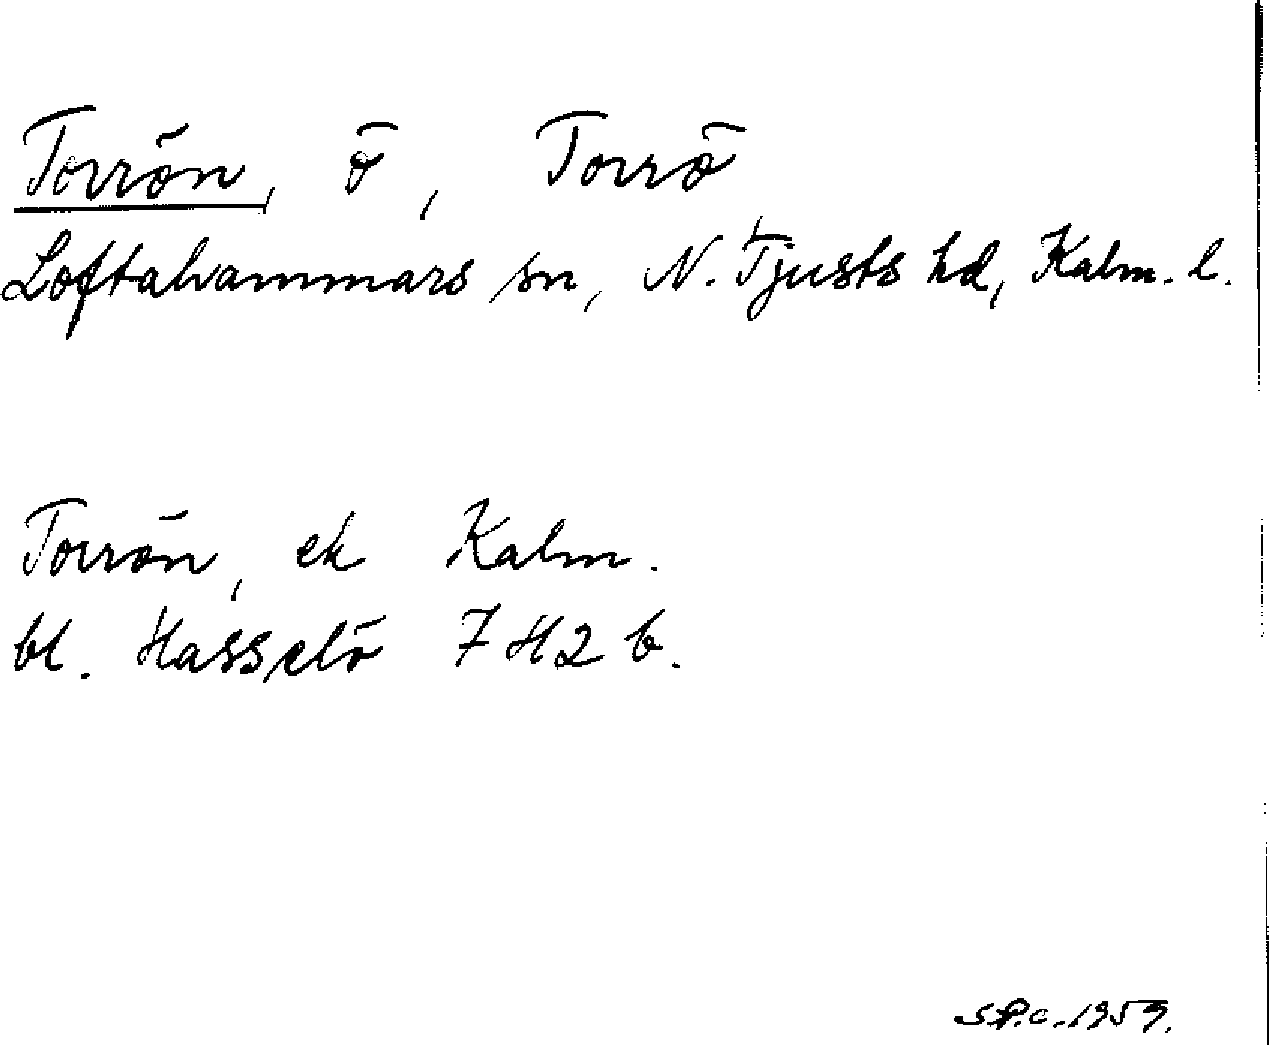 Torrön, ö, Torrö
Loftahammars sn, N. Tjusts hd, Kalm. l.
Torrön, ek Kalm.
bl. Hasselö 7 H 2 b.
S.P.C. 1959.